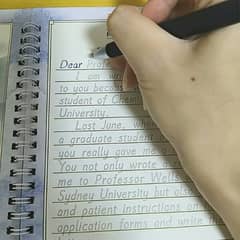 Dear Profe
I am wr
to you beca
student of Chem
University.
Last June, wh
a graduate student
you really gave me
You not only wrote a
me to Professor Wells
Sydney University but also
and patient instructions on
application forms and write